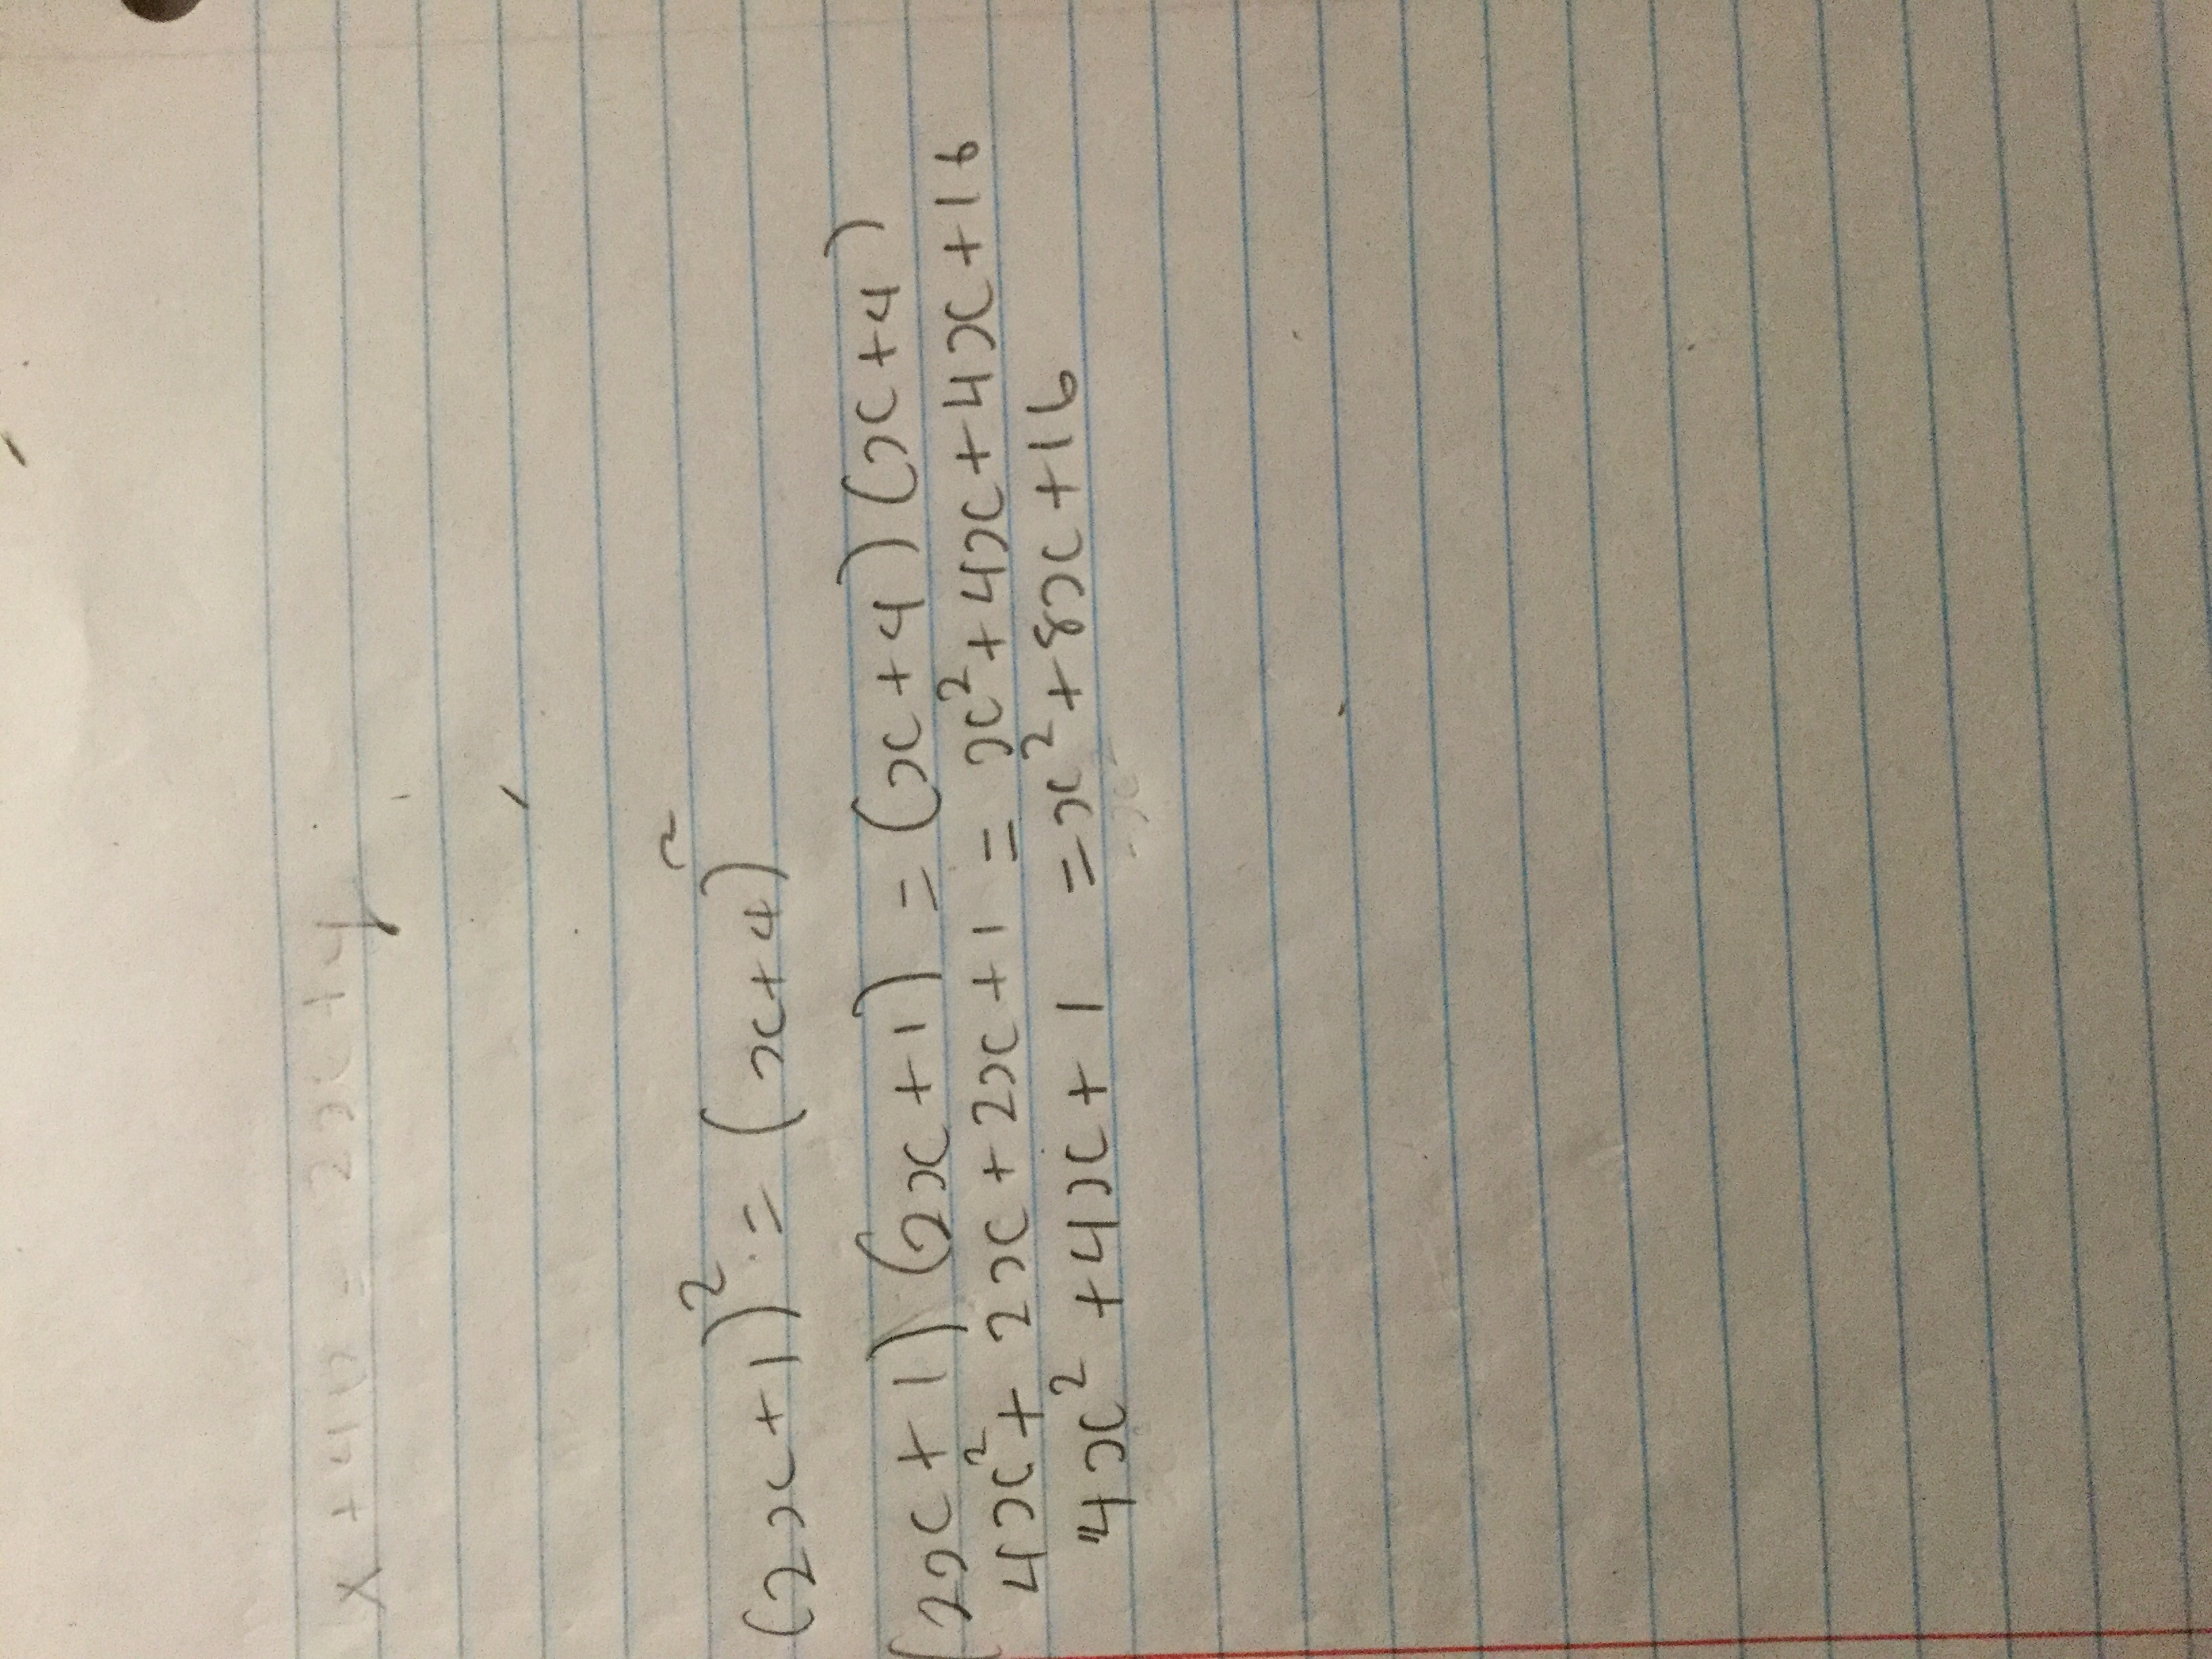 (2x+1)² = (x+4)²
(2x+1)(2x+1) = (x+4)(x+4)
4x²+2x+2x+1 = x²+4x+4x+16
4x²+4x+1 = x²+8x+16